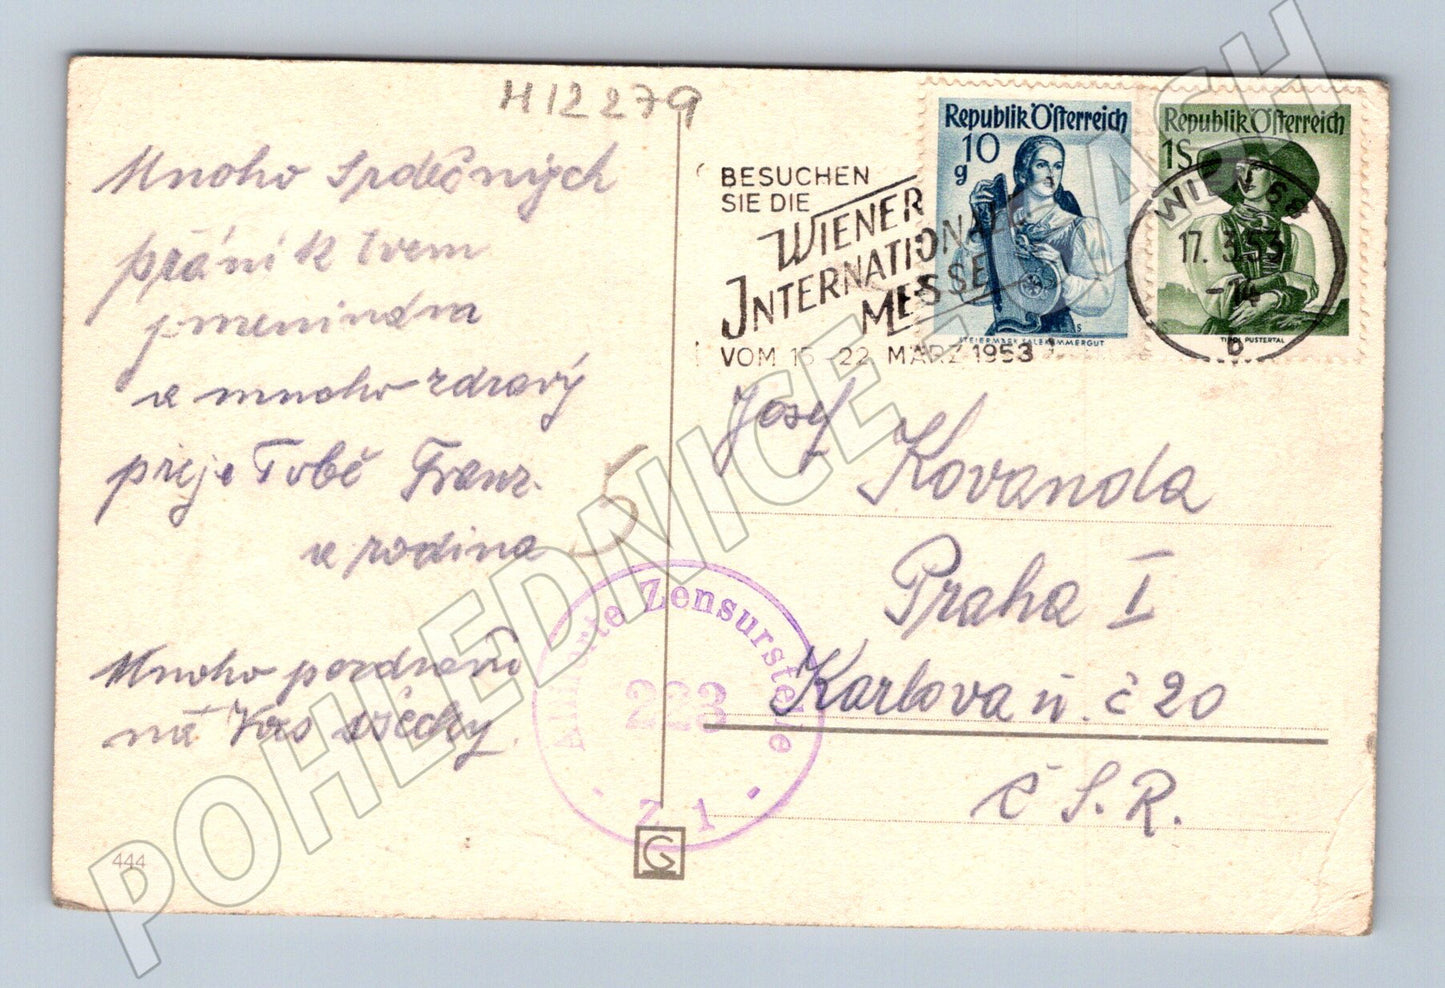 H12279
Mnoho srdečných
přání k tvem
jmenindm
a mnoho zdravý
přeje Tobě Franz.
a rodina
Mnoho pozdravů
na Vas všechy.
5
444
BESUCHEN
SIE DIE
WIENER
INTERNATIONALE
MESSE
VOM 15-22 MÄRZ 1953
Republik Österreich
10
g
STEIERMARK SALZKAMMERGUT
Republik Österreich
1S
TIROL PUSTERTAL
WIEN 68
17. 3. 53
-14
b
Josef Kovanda
Praha I
Karlova u. č 20
Č. S. R.
Alliierte Zensurstelle
223
- Z 1 -
G
POHLEDNICE ASH